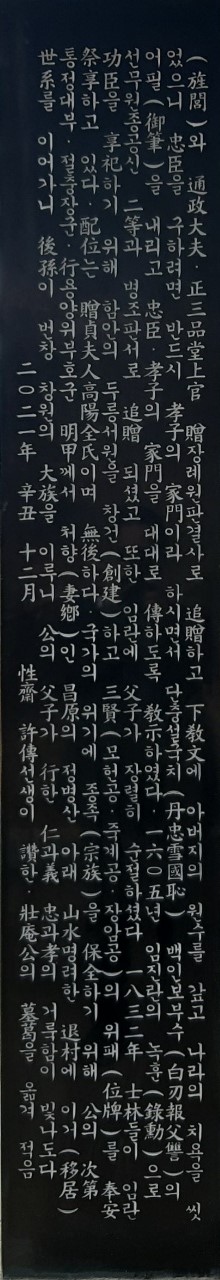 (旌閭)와 通政大夫·正三品堂上官 贈장례원판결사로 追贈하고 下敎文에 아버지의 원수를 갚고 나라의 치욕을 씻
었으니 忠臣을 구하려면 반드시 孝子의 家門이라 하시면서 단충설국치(丹忠雪國恥) 백인보부수(白刃報父讐)의
어필(御筆)을 내리고 忠臣·孝子의 家門을 대대로 傳하도록 敎示하였다 一六〇五년 임진란의 녹훈(錄勳)으로
선무원종공신 二等과 병조판서로 追贈 되셨고 또한 임란에 父子가 장렬히 순절하셨다 一八三二年 士林들이 임란
功臣을 享祀하기 위해 함안의 두릉서원을 창건(創建)하고 三賢(모헌공·죽계공·장암공)의 위패(位牌)를 奉安
祭享하고 있다·配位는 贈貞夫人高陽全氏이며 無後하다·국가의 위기에 종족(宗族)을 保全하기 위해 公의 次第
통정대부·절충장군·行용양위부호군 明甲께서 처향(妻鄕)인 昌原의 정병산 아래 山水명려한 退村에 이거(移居)
世系를 이어가니 後孫이 번창 창원의 大族을 이루니 公의 父子가 行한 仁과 義 忠과 孝의 거룩함이 빛나도다
二〇二一年 辛丑 十二月 性齋 許傳선생이 讚한 壯庵公의 墓碣을 옮겨 적음